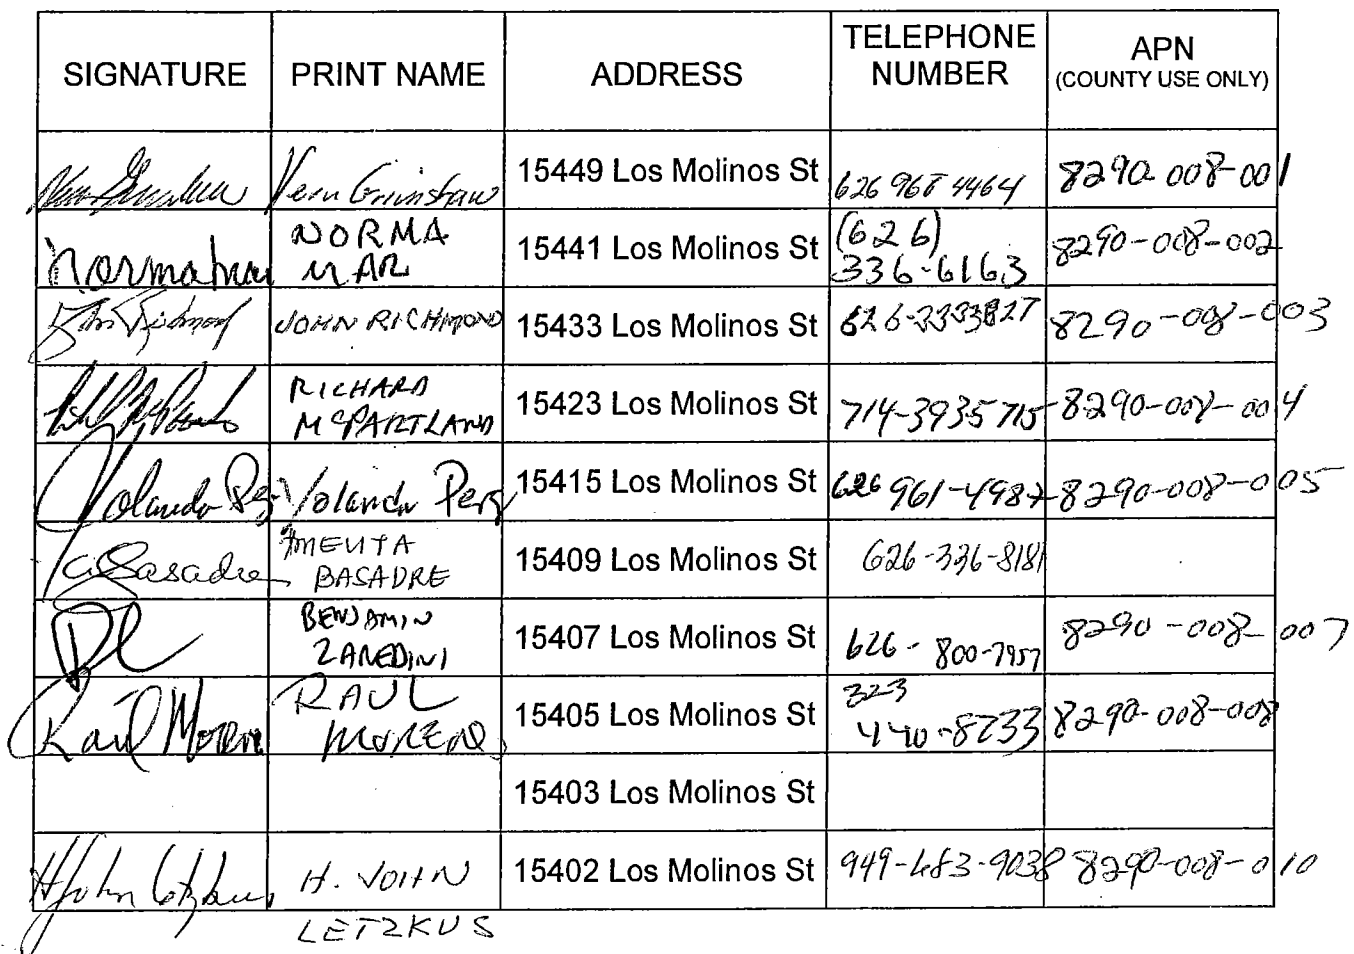 SIGNATURE PRINT NAME ADDRESS TELEPHONE NUMBER APN (COUNTY USE ONLY)
Vern Grimshaw 15449 Los Molinos St 626 968 4464 8290-008-001
Norma Mar NORMA MAR 15441 Los Molinos St (626) 336-6163 8290-008-002
John Richmond JOHN RICHMOND 15433 Los Molinos St 626-3333827 8290-008-003
RICHARD McPARTLAND 15423 Los Molinos St 714-3935715 8290-008-004
Yolanda Perz Yolanda Perz 15415 Los Molinos St 626 961-4987 8290-008-005
Basadre BASADRE 15409 Los Molinos St 626-336-8181
BENJAMIN ZAREDINI 15407 Los Molinos St 626-800-7957 8290-008-007
Raul Moreno RAUL MORENO 15405 Los Molinos St 323 440-8733 8290-008-008
15403 Los Molinos St
H John Letzkus H. JOHN LETZKUS 15402 Los Molinos St 949-683-9038 8290-008-010